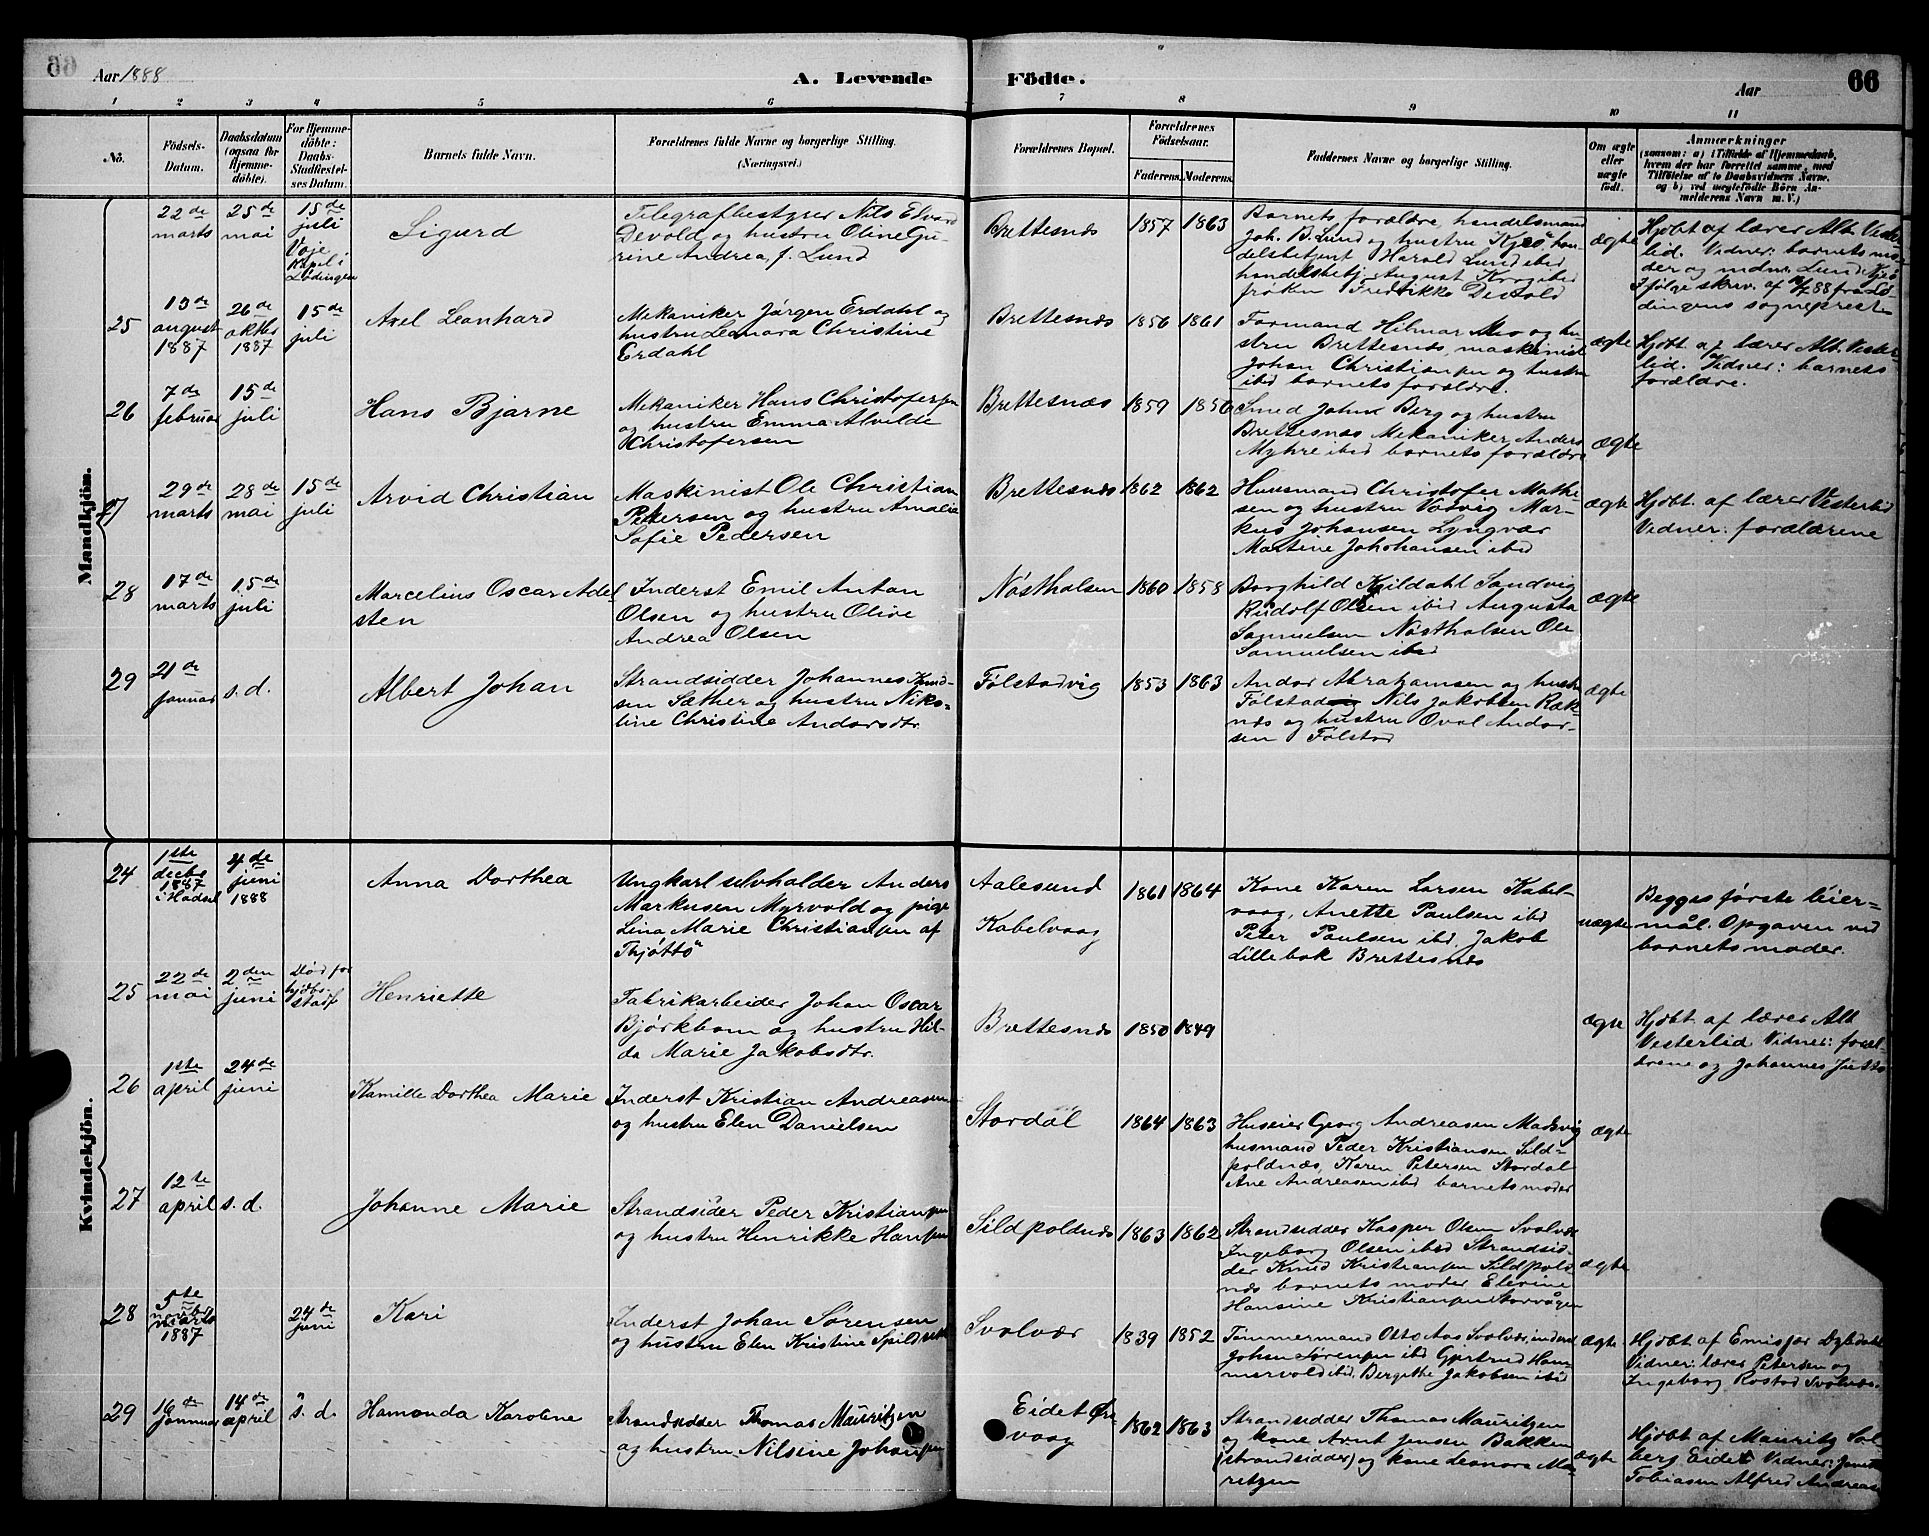 66
Aar 1888
A. Levende
Födte.
Aar
66
1 2 3 4 5 6 7 8 9 10 11
No.
Födsels-
Datum.
Daabsdatum
(ogsaa for
Hjemme-
döbte).
For Hjemme-
döbte:
Daabs-
Stadfæstel-
ses Datum.
Barnets fulde Navn.
Forældrenes fulde Navne og borgerlige Stilling.
(Næringsvei.)
Forældrenes Bopæl.
Forældrenes
Födselsaar.
Faderens.
Moderens.
Faddernes Navne og borgerlig Stilling.
Om ægte
eller
uægte
födt.
Anmærkninger
(saasom: a) i Tilfælde af Hjemmedaab,
hvem der har forrettet samme, med
Tilföielse af to Daabsvidners Navne,
og b) ved uægtefödte Börn An-
melderens Navn m. V.)
Mandkjön.
22de
marts
25de
mai
15de
juli
Voje
Kapel i
Lødingen
Sigurd
Telegrafbestyrer Nils Edvard
Devold og hustru Oline Gu-
rine Andrea f. Lund
Brettesnæs
1857
1863
Barnets forældre, handelsmand
Joh. B. Lund og hustru Kjeö, han-
delsbetjent Harald Lund ibid
handelsbetj. August Krog ibid
frøken Fredrikke Devold
ægte
Hjdbt af lærer Alb. Vester-
lid. Vidner: barnets mo-
der og mdm. Lund Kjeö
Ifølge skriv. af 88 fra Lø-
dingens sogneprest
25
13de
august
1887
26de
oktbr
1887
15de
juli
Axel Leonhard
Mekaniker Jørgen Erdahl og
hustru Leonora Christine
Erdahl
Brettesnæs
1856
1861
Formand Hilmar Moe og hu-
stru Brettesnæs, maskinist
Johan Christiansen og hustru
ibid barnets forældre.
ægte
Hjdbt af lærer Alb. Vester-
lid. Vidner: barnets
forældre.
26
7de
februar
15de
juli
Hans Bjarne
Mekaniker Hans Christofersen
og hustru Emma Alvilde
Christofersen
Brettesnæs
1859
1856
Smed Johan Berg og hustru
Brettesnæs Mekaniker Anders
Myhre ibid barnets forældre
ægte
27
29de
marts
28de
mai
15de
juli
Arvid Christian
Maskinist Ole Christian
Petersen og hustru Amalie
Sofie Pedersen
Brettesnæs
1862
1862
Huusmand Christofer Mathe-
sen og hustru Votvig Mar-
kus Johansen Lyngvær
Martine Johohansen ibid
ægte
Hjdbt af lærer Vesterlid
Vidner: forældrene
28
17de
marts
15de
juli
Marcelius Oscar Adel
sten
Inderst Emil Antan
Olsen og hustru Olive
Andrea Olsen
Nøstholsen
1860
1858
Borghild Kjildahl Sandvig
Rudolf Olsen ibid Augusta
Samuelsen Nøstholsen Ole
Samuelsen ibid
ægte
29
21de
januar
s. d.
Albert Johan
Strandsidder Johannes Knud-
sen Sæther og hustru Niko-
line Christine Andorsdtr.
Følstadvig
1853
1863
Andor Abrahamsen og hustru
Følstad Nils Jakobsen Ræk-
næs og hustru Oval Andor-
sen Følstad
ægte
Kvindekjön.
24
1ste
decbr
1887
i Hadsel
4de
juni
1888
Anna Dorthea
Ungkarl selvholder Anders
Markusen Myrvold og pige
Lina Marie Christiansen af
Thjøttö
Aalesund
Kabelvaag
1861
1864
Kone Karen Larsen Kabel-
vaag, Anette Paulsen ibid
Peter Paulsen ibid, Jakob
Lillebak Brettesnæs
uægte
Begges første leier-
mål. Opgaven ved
barnets moder.
25
22de
mai
2den
juni
Død før
hjdbs.
stadf
Henriette
Fabrikarbeider Johan Oscar
Bjørkbom og hustru Hil-
da Marie Jakobsdtr.
Brettesnæs
1850
1849
ægte
Hjdbt af lærer Alb
Vesterlid Vidner: foræl-
drene og Johannes Jutto
26
1ste
april
24de
juni
Kamille Dorthea Marie
Inderst Kristian Andreasen
og hustru Elen Danielsen
Stordal
1864
1863
Huseier Georg Andreasen Madvig
husmand Peder Kristiansen Sild-
poldnæs, Karen Petersen Stordal
Ane Andreasen ibid barnets moder
ægte
27
12te
april
s. d.
Johanne Marie
Strandsider Peder Kristiansen
og hustru Henrikke Hansen
Sildpoldnæs
1863
1862
Strandsidder Kasper Olsen Svolvær
Ingeborg Olsen ibid Strandsid-
der Knud Kristiansen Sildpold
næs barnets moder Elevine
Hansine Kristiansen Storvågen
ægte
28
5te
novbr
marts
1887
24de
juni
Kari
Inderst Johan Sørensen
og hustru Elen Kristine Spildræt
Svolvær
1839
1852
Tømmermand Otto Aas Svolvær, inderst
Johan Sørensen ibid Gjertrud Ham-
mervold ibid. Bergitte Jakobsen ibid
ægte
Hjdbt af Emisær Dybdahl
Vidner: lærer Petersen og
Ingeborg Rostad Svolvær.
29
16de
januar
14de
april
s. d.
Hamonda Karoline
Strandsidder Thomas Mauritzen
og hustru Nilsine Johansen
Eidet Øre-
vaag
1862
1863
Strandsidder Thomas Mauritzen
og kone Arnt Jensen Bakken
(strandsidder) og kone Leonora Ma-
ritzen
ægte
Hjdbt af Mauritz Sol
berg Eidet Vidner: Janette
Tobiasen Alfred Andreas